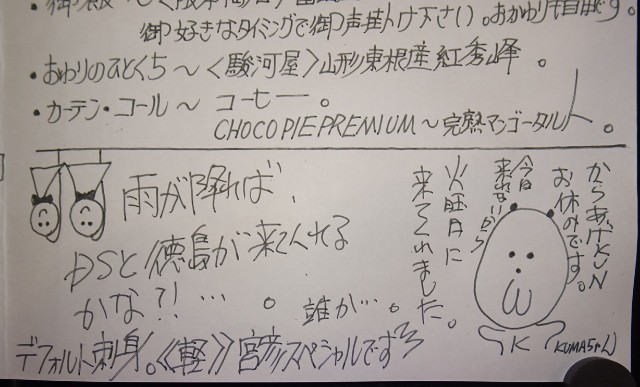 御好きなタイミングで御声掛け下さい。おかわり自由です。
・おわりのひとくち〜〈駿河屋〉山形東根産紅秀峰。
・カーテン・コール〜コーヒー。
CHOCO PIE PREMIUM〜完熟マンゴータルト。
雨が降れば、
DSと徳島が来てくれる
かな?!…。誰が…。
デフォルト刺身。《軽》宮彦スペシャルです
火曜日に
来てくれました。
からあげKUN
お休みです。
今日
来れないから
K
KUMAちゃん